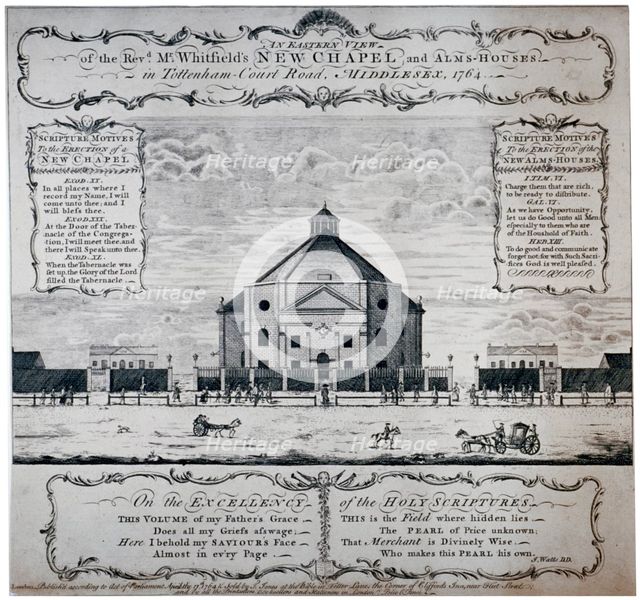 AN EASTERN VIEW
of the Revd. Mr. Whitfield's NEW CHAPEL and ALMS-HOUSES.
in Tottenham-Court Road, MIDDLESEX, 1764.
SCRIPTURE MOTIVES
To the ERECTION of a
NEW CHAPEL
EXOD. XX.
In all places where I
record my Name, I will
come unto thee; and I
will bless thee.
EXOD. XXIX.
At the Door of the Taber-
nacle of the Congrega-
tion, I will meet thee, and
there I will Speak unto thee.
EXOD. XL.
When the Tabernacle was
set up, the Glory of the Lord
filled the Tabernacle
SCRIPTURE MOTIVES
To the ERECTION of the
NEW ALMS-HOUSES.
I. TIM. VI.
Charge them that are rich,
to be ready to distribute.
GAL. VI.
As we have Opportunity,
let us do Good unto all Men
especially to them who are
of the Houshold of Faith.
HEB. XIII.
To do good and communicate
forget not: for with Such Sacri-
fices God is well pleased.
Heritage
Heritage
Heritage
Heritage
Heritage
Heritage
On the EXCELLENCY of the HOLY SCRIPTURES.
THIS VOLUME of my Father's Grace
Does all my Griefs asswage;
Here I behold my SAVIOURS Face
Almost in ev'ry Page.
THIS is the Field where hidden lies
The PEARL of Price unknown;
That Merchant is Divinely Wise
Who makes this PEARL his own.
J. Watts D.D.
London, Publish'd according to Act of Parliament April 1764 & Sold by J. Jones at the Bible in Fetter Lane, the Corner of Cliffords Inn, near Fleet Street
and by all the Printsellers Booksellers and Stationers in London